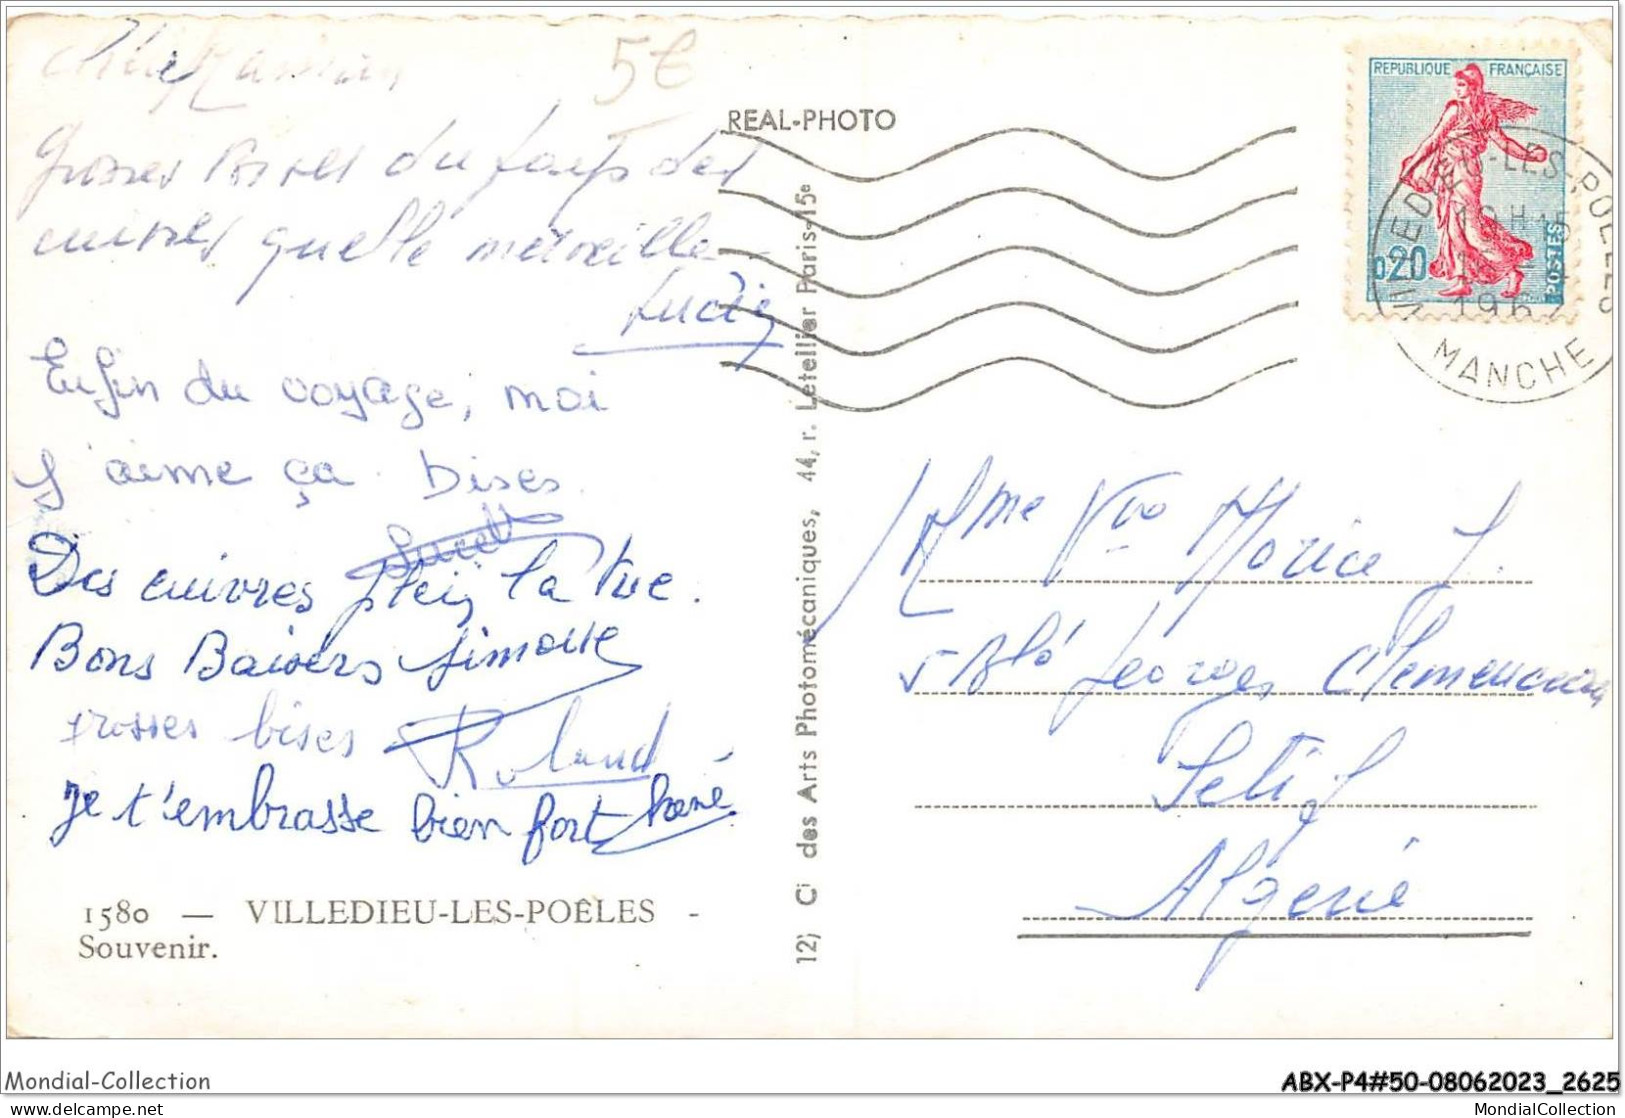 5€
REAL-PHOTO
REPUBLIQUE FRANÇAISE
0,20
POSTES
VILLEDIEU-LES-POELES
MANCHE
Grosses bises du pays des
cuivres quelle merveille
Enfin du voyage, moi
j'aime ça. Bises
Des cuivres plein la rue.
Bons Baisers Simone
grosses bises Roland
Je t'embrasse bien fort
1580 — VILLEDIEU-LES-POÊLES -
Souvenir.
12, Cie des Arts Photomécaniques, 44, r. Letellier Paris-15e
Mme Vve Morice J.
5 Bld Georges Clemenceau
Setif
Algérie
Mondial-Collection
ABX-P4#50-08062023_2625
www.delcampe.net
MondialCollection